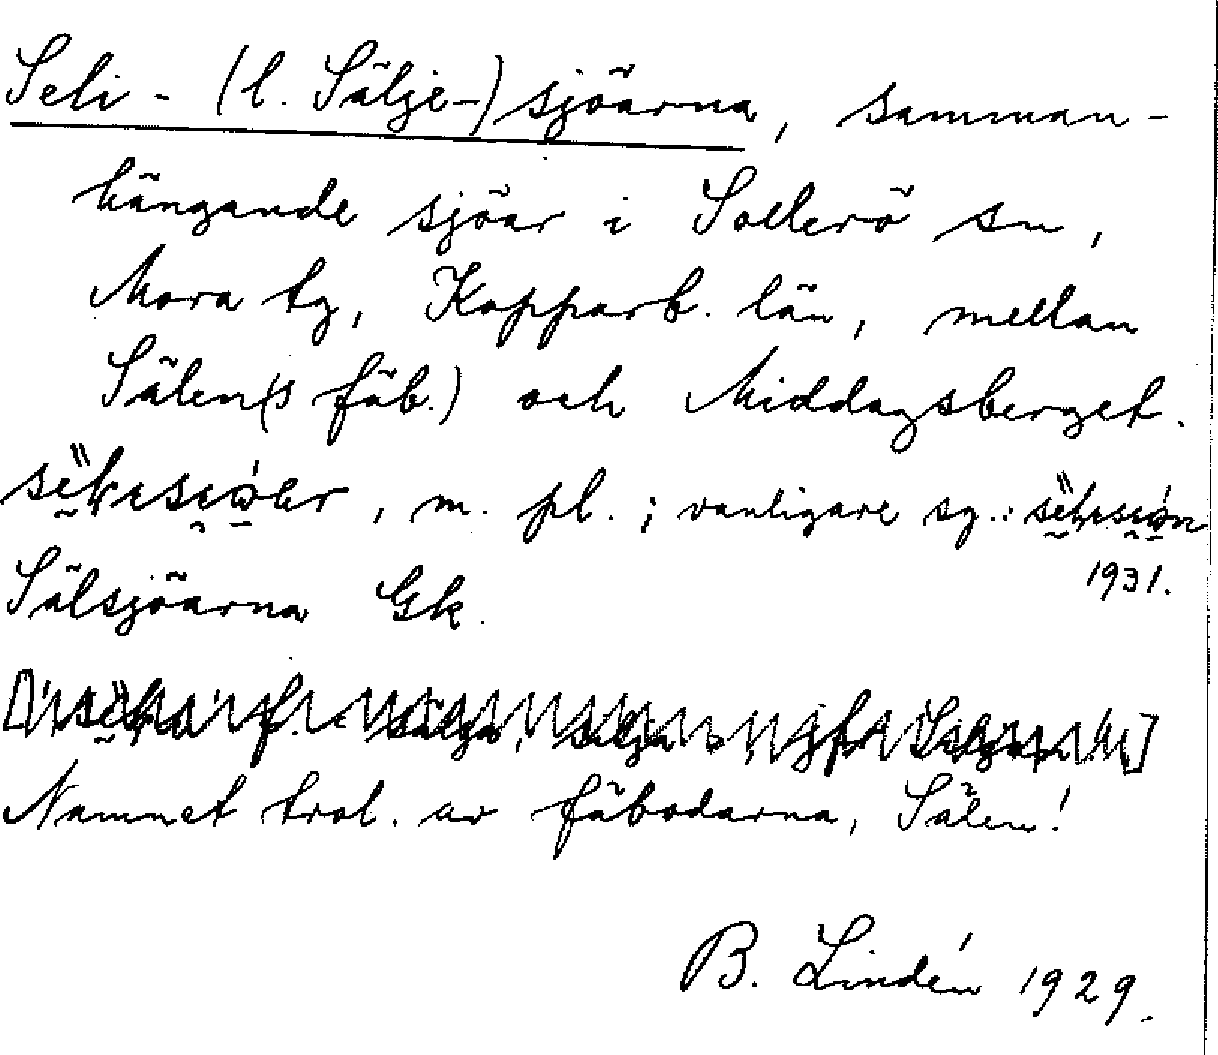 Seli- (l. Sälje-)sjöarna, samman-
hängande sjöar i Sollerö sn,
Mora tg, Kopparb. län, mellan
Sälen(s fäb.) och Middagsberget.
, m. pl.; vanligare sg.:
1931.
Sälsjöarna Gk.
Namnet trol. av fäbodarna, Sälen!
B. Lindén 1929.